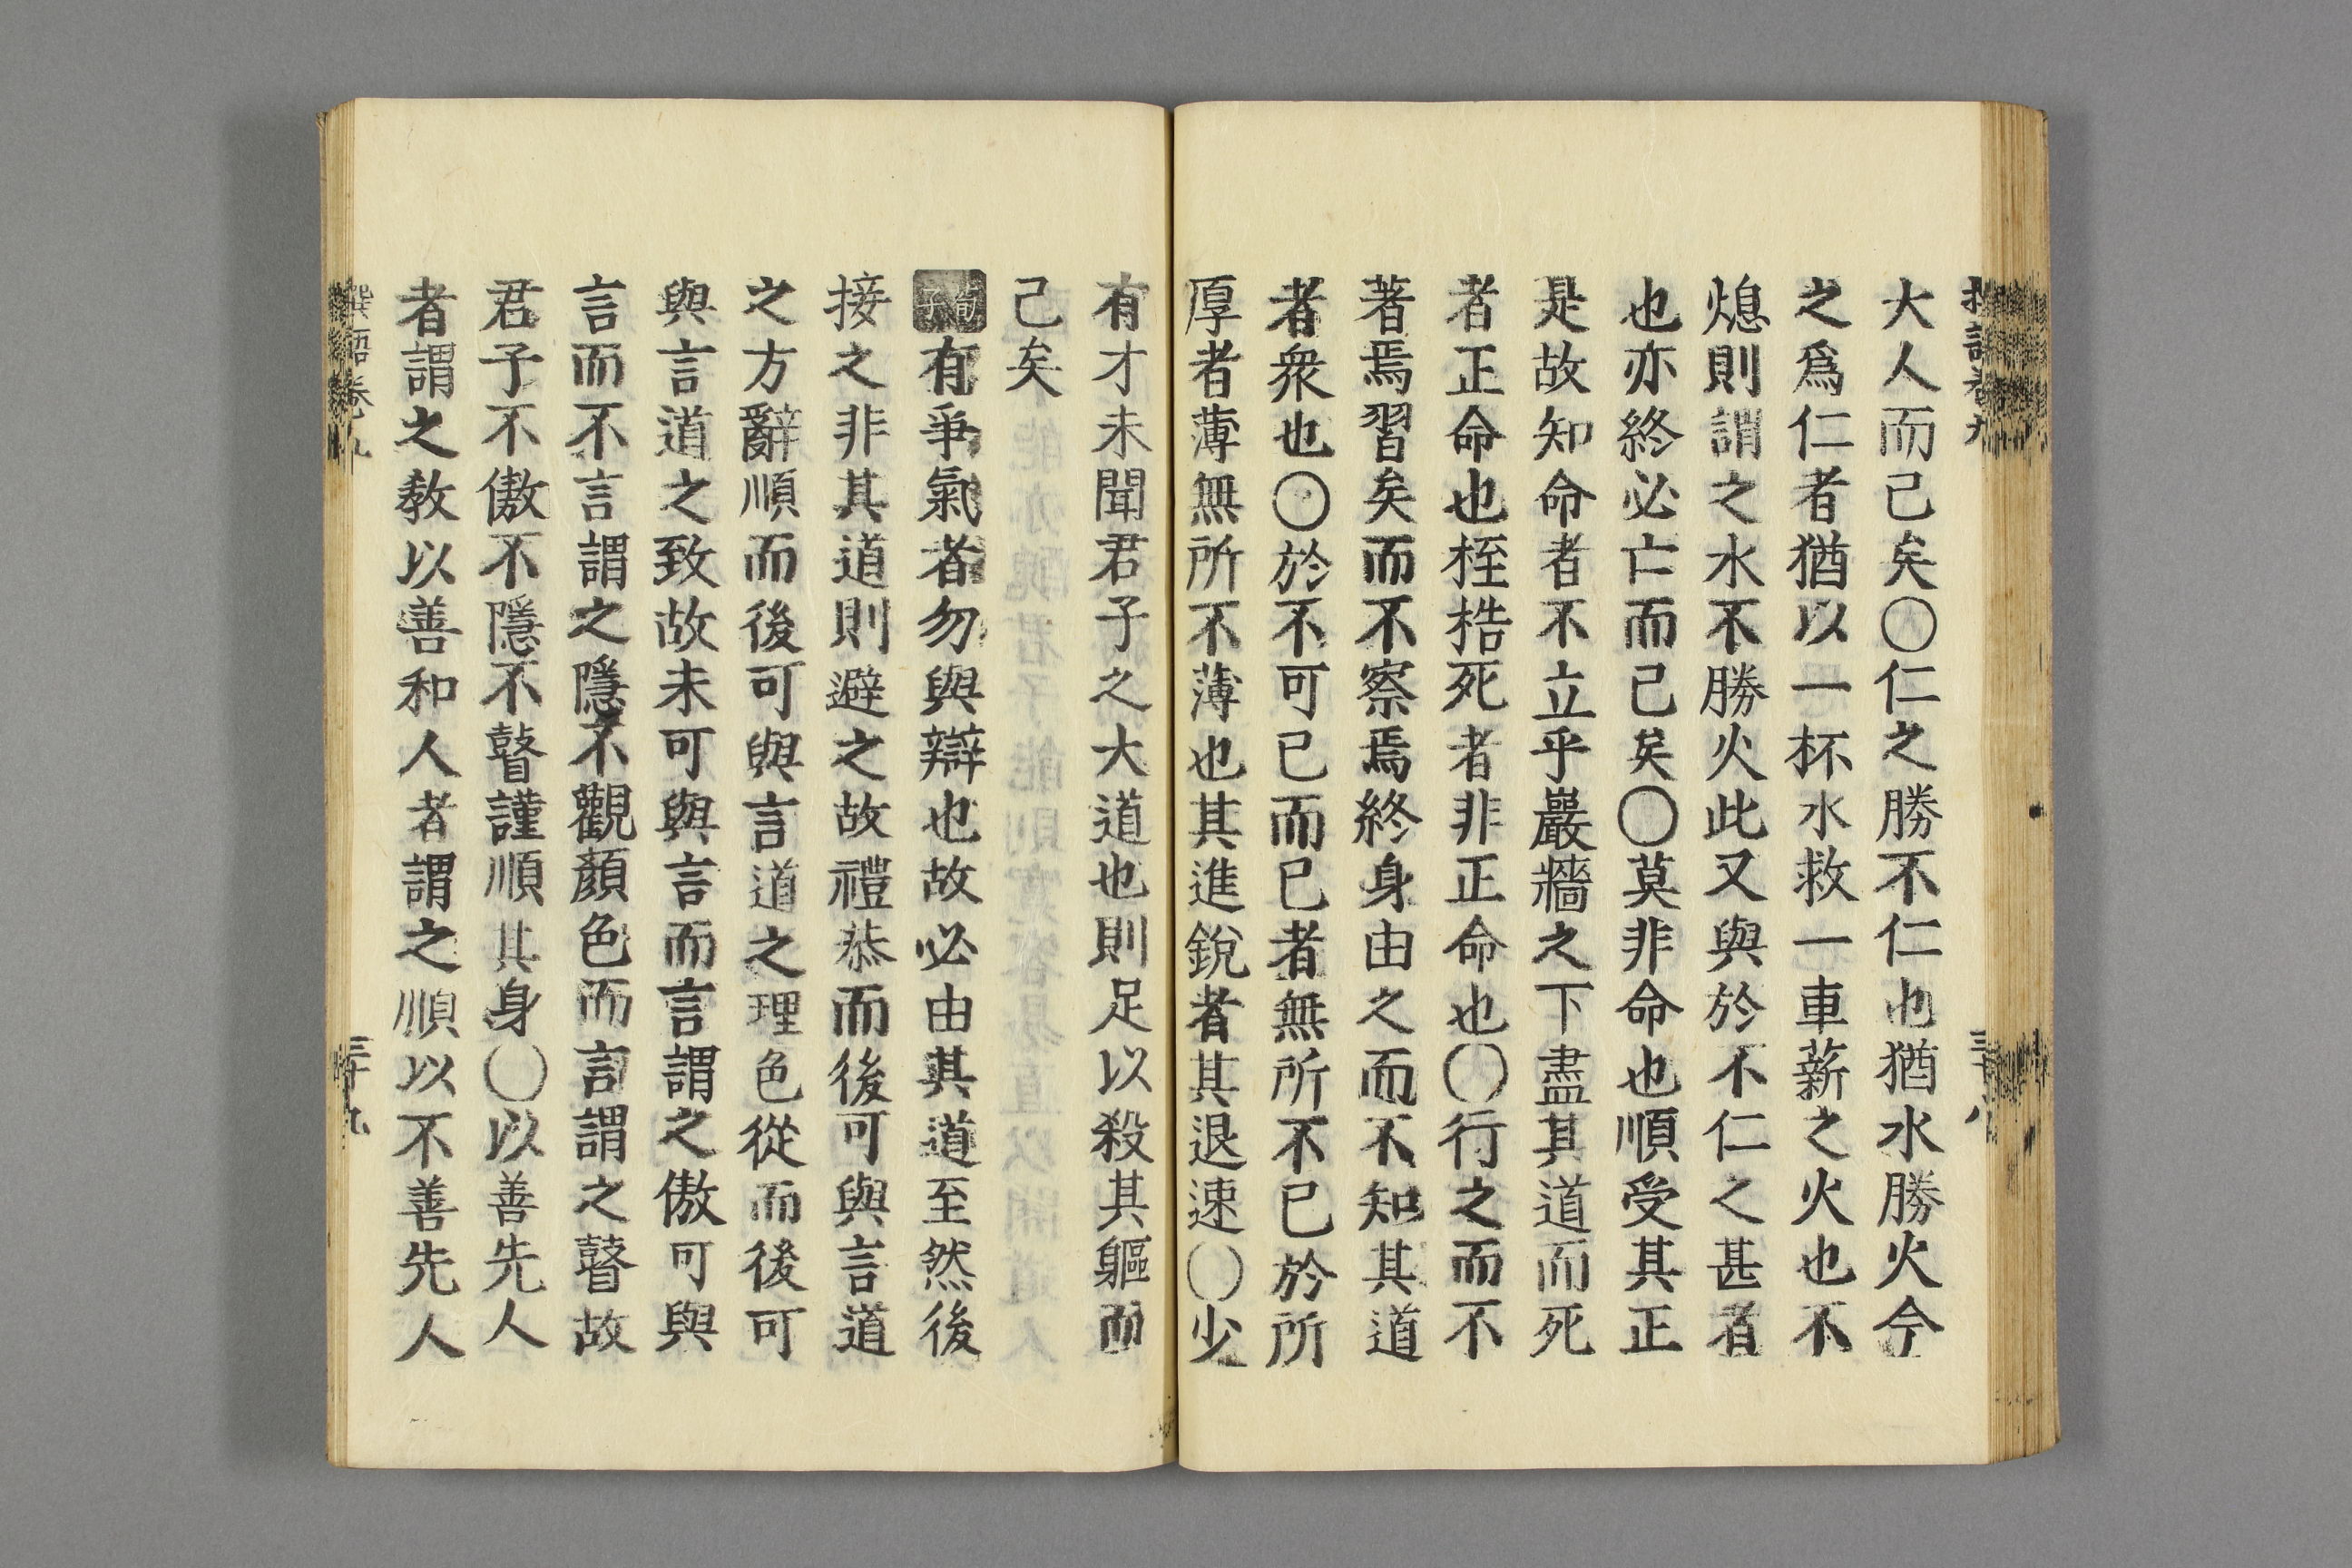 大人而已矣○仁之勝不仁也猶水勝火今
之爲仁者猶以一杯水救一車薪之火也不
熄則謂之水不勝火此又與於不仁之甚者
也亦終必亡而已矣○莫非命也順受其正
是故知命者不立乎巖牆之下盡其道而死
者正命也桎梏死者非正命也○行之而不
著焉習矣而不察焉終身由之而不知其道
者衆也○於不可已而已者無所不已於所
厚者薄無所不薄也其進銳者其退速○少
有才未聞君子之大道也則足以殺其軀而
已矣
荀子有爭氣者勿與辯也故必由其道至然後
接之非其道則避之故禮恭而後可與言道
之方辭順而後可與言道之理色從而後可
與言道之致故未可與言而言謂之傲可與
言而不言謂之隱不觀顏色而言謂之瞽故
君子不傲不隱不瞽謹順其身○以善先人
者謂之教以善和人者謂之順以不善先人
撰語卷九
三十九